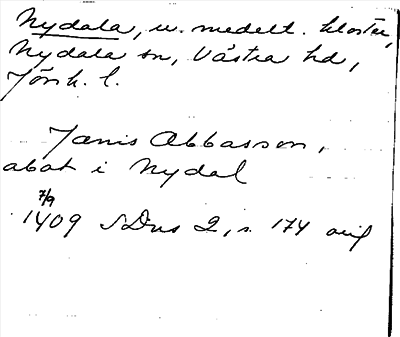 Nydala, u. medelt. kloster,
Nydala sn, Västra hd,
Jönk. l.
Jænis Abbasson,
abot i Nydal
7/9
1409 SDns 2, s. 174 orig